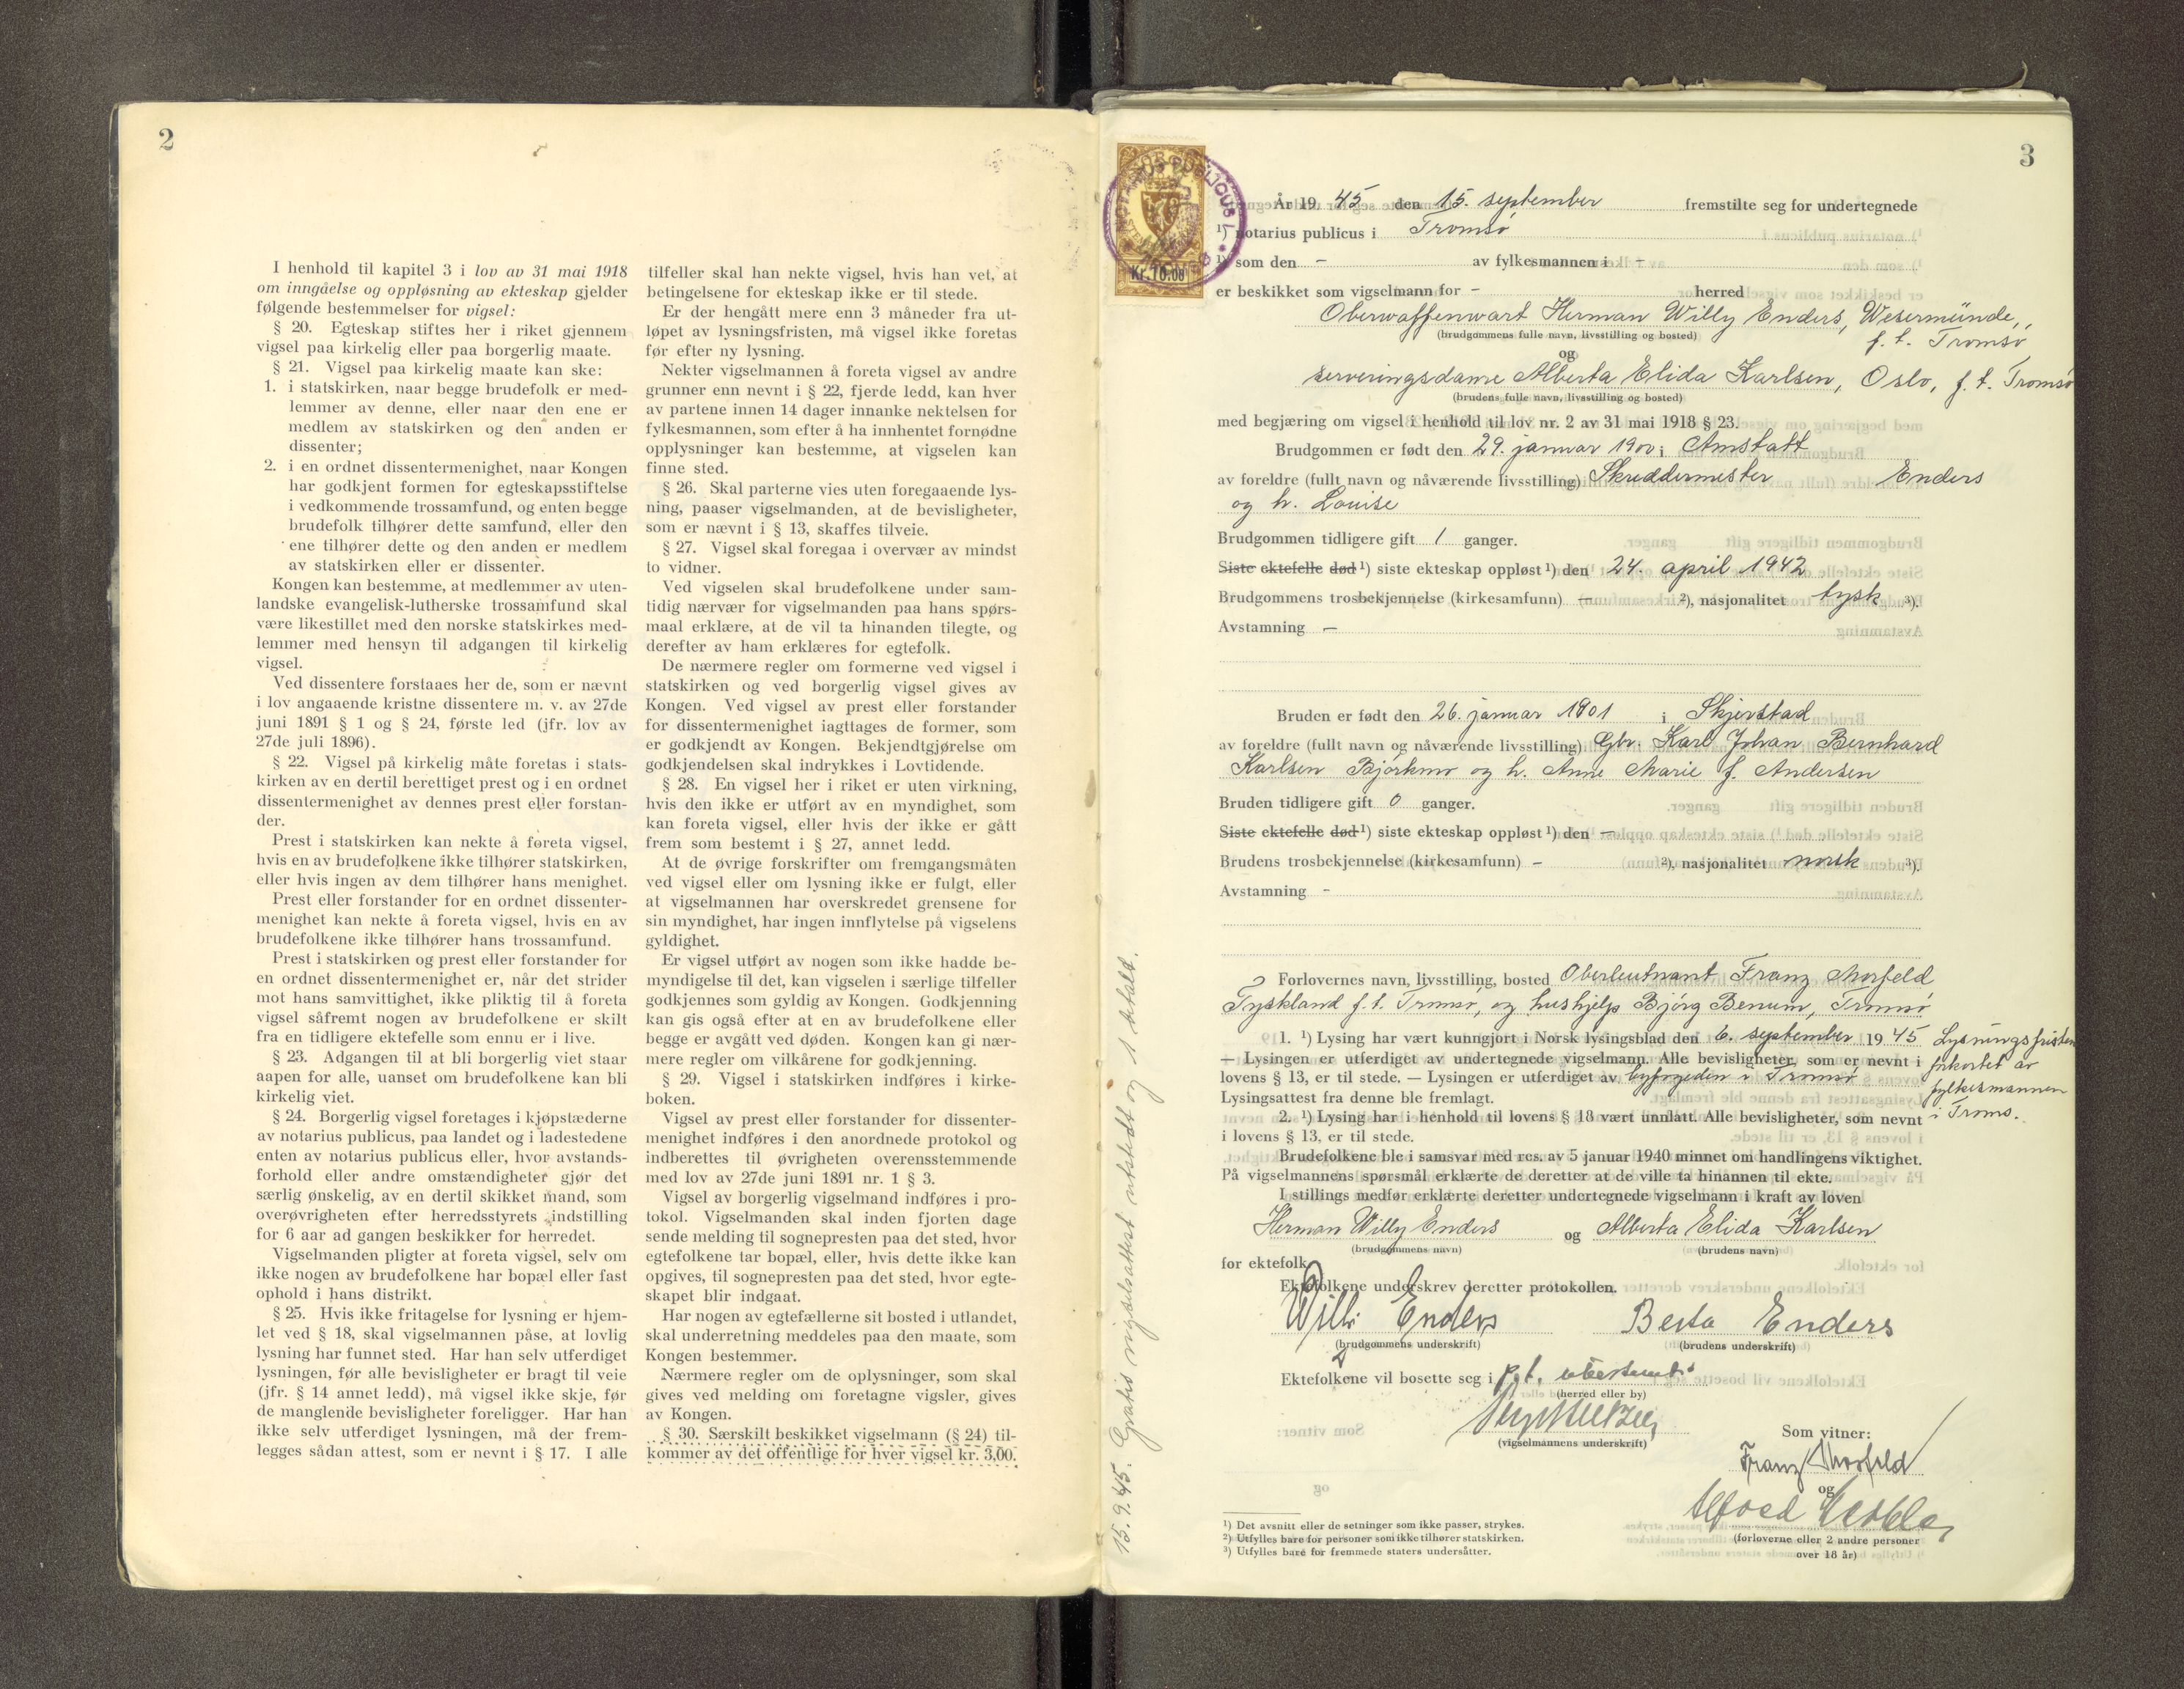 2
I henhold til kapitel 3 i lov av 31 mai 1918
om inngåelse og oppløsning av ekteskap gjelder
følgende bestemmelser for vigsel:
§ 20. Egteskap stiftes her i riket gjennem
vigsel paa kirkelig eller paa borgerlig maate.
§ 21. Vigsel paa kirkelig maate kan ske:
1. i statskirken, naar begge brudefolk er med-
lemmer av denne, eller naar den ene er
medlem av statskirken og den anden er
dissenter;
2. i en ordnet dissentermenighet, naar Kongen
har godkjent formen for egteskapsstiftelse
i vedkommende trossamfund, og enten begge
brudefolk tilhører dette samfund, eller den
ene tilhører dette og den anden er medlem
av statskirken eller er dissenter.
Kongen kan bestemme, at medlemmer av uten-
landske evangelisk-lutherske trossamfund skal
være likestillet med den norske statskirkes med-
lemmer med hensyn til adgangen til kirkelig
vigsel.
Ved dissentere forstaaes her de, som er nævnt
i lov angaaende kristne dissentere m. v. av 27de
juni 1891 § 1 og § 24, første led (jfr. lov av
27de juli 1896).
§ 22. Vigsel på kirkelig måte foretas i stats-
kirken av en dertil berettiget prest og i en ordnet
dissentermenighet av dennes prest eller forstan-
der.
Prest i statskirken kan nekte å foreta vigsel,
hvis en av brudefolkene ikke tilhører statskirken,
eller hvis ingen av dem tilhører hans menighet.
Prest eller forstander for en ordnet dissenter-
menighet kan nekte å foreta vigsel, hvis en av
brudefolkene ikke tilhører hans trossamfund.
Prest i statskirken og prest eller forstander for
en ordnet dissentermenighet er, når det strider
mot hans samvittighet, ikke pliktig til å foreta
vigsel såfremt nogen av brudefolkene er skilt
fra en tidligere ektefelle som ennu er i live.
§ 23. Adgangen til at bli borgerlig viet staar
aapen for alle, uanset om brudefolkene kan bli
kirkelig viet.
§ 24. Borgerlig vigsel foretages i kjøpstæderne
av notarius publicus, paa landet og i ladestedene
enten av notarius publicus eller, hvor avstands-
forhold eller andre omstændigheter gjør det
særlig ønskelig, av en dertil skikket mand, som
overøvrigheten efter herredsstyrets indstilling
for 6 aar ad gangen beskikker for herredet.
Vigselmanden pligter at foreta vigsel, selv om
ikke nogen av brudefolkene har bopæl eller fast
ophold i hans distrikt.
§ 25. Hvis ikke fritagelse for lysning er hjem-
let ved § 18, skal vigselmannen påse, at lovlig
lysning har funnet sted. Har han selv utferdiget
lysningen, før alle bevisligheter er bragt til veie
(jfr. § 14 annet ledd), må vigsel ikke skje, før
de manglende bevisligheter foreligger. Har han
ikke selv utferdiget lysningen, må der frem-
legges sådan attest, som er nevnt i § 17. I alle
tilfeller skal han nekte vigsel, hvis han vet, at
betingelsene for ekteskap ikke er til stede.
Er der hengått mere enn 3 måneder fra ut-
løpet av lysningsfristen, må vigsel ikke foretas
før efter ny lysning.
Nekter vigselmannen å foreta vigsel av andre
grunner enn nevnt i § 22, fjerde ledd, kan hver
av partene innen 14 dager innanke nektelsen for
fylkesmannen, som efter å ha innhentet fornødne
opplysninger kan bestemme, at vigselen kan
finne sted.
§ 26. Skal parterne vies uten foregaaende lys-
ning, paaser vigselmanden, at de bevisligheter,
som er nævnt i § 13, skaffes tilveie.
§ 27. Vigsel skal foregaa i overvær av mindst
to vidner.
Ved vigselen skal brudefolkene under sam-
tidig nærvær for vigselmanden paa hans spørs-
maal erklære, at de vil ta hinanden tilegte, og
derefter av ham erklæres for egtefolk.
De nærmere regler om formerne ved vigsel i
statskirken og ved borgerlig vigsel gives av
Kongen. Ved vigsel av prest eller forstander
for dissentermenighet iagttages de former, som
er godkjendt av Kongen. Bekjendtgjørelse om
godkjendelsen skal indrykkes i Lovtidende.
§ 28. En vigsel her i riket er uten virkning,
hvis den ikke er utført av en myndighet, som
kan foreta vigsel, eller hvis der ikke er gått
frem som bestemt i § 27, annet ledd.
At de øvrige forskrifter om fremgangsmåten
ved vigsel eller om lysning ikke er fulgt, eller
at vigselmannen har overskredet grensene for
sin myndighet, har ingen innflytelse på vigselens
gyldighet.
Er vigsel utført av nogen som ikke hadde be-
myndigelse til det, kan vigselen i særlige tilfeller
godkjennes som gyldig av Kongen. Godkjenning
kan gis også efter at en av brudefolkene eller
begge er avgått ved døden. Kongen kan gi nær-
mere regler om vilkårene for godkjenning.
§ 29. Vigsel i statskirken indføres i kirke-
boken.
Vigsel av prest eller forstander for dissenter-
menighet indføres i den anordnede protokol og
indberettes til øvrigheten overensstemmende
med lov av 27de juni 1891 nr. 1 § 3.
Vigsel av borgerlig vigselmand indføres i pro-
tokol. Vigselmanden skal inden fjorten dage
sende melding til sognepresten paa det sted, hvor
egtefolkene tar bopæl, eller, hvis dette ikke kan
opgives, til sognepresten paa det sted, hvor egte-
skapet blir indgaat.
Har nogen av egtefællerne sit bosted i utlandet,
skal underretning meddeles paa den maate, som
Kongen bestemmer.
Nærmere regler om de oplysninger, som skal
gives ved melding om foretagne vigsler, gives
av Kongen.
§ 30. Særskilt beskikket vigselmann (§ 24) til-
kommer av det offentlige for hver vigsel kr. 3,00.
3
NOTARIUS PUBLICUS I
Kr. 10.00
År 19 45 den 15. september fremstilte seg for undertegnede
¹) notarius publicus i Tromsø
¹) som den - av fylkesmannen i -
er beskikket som vigselmann for - herred
Oberwaffenwart Herman Willy Enders, Wesermünde,
(brudgommens fulle navn, livsstilling og bosted) f. t. Tromsø
og
serveringsdame Alberta Elida Karlsen, Oslo, f. t. Tromsø
(brudens fulle navn, livsstilling og bosted)
med begjæring om vigsel i henhold til lov nr. 2 av 31 mai 1918 § 23.
Brudgommen er født den 29. januar 1900 i Amstatt
av foreldre (fullt navn og nåværende livsstilling) Skreddermester Enders
og h. Louise
Brudgommen tidligere gift 1 ganger.
Siste ektefelle død ¹) siste ekteskap oppløst ¹) den 24. april 1942
Brudgommens trosbekjennelse (kirkesamfunn) - ²), nasjonalitet tysk ³).
Avstamning -
Bruden er født den 26. januar 1901 i Skjerstad
av foreldre (fullt navn og nåværende livsstilling) Gbr. Karl Johan Bernhard
Karlsen Bjørkmo og h. Anne Marie f. Andersen
Bruden tidligere gift 0 ganger.
Siste ektefelle død ¹) siste ekteskap oppløst ¹) den -
Brudens trosbekjennelse (kirkesamfunn) - ²), nasjonalitet norsk ³).
Avstamning -
Forlovernes navn, livsstilling, bosted Oberleutnant Franz Morfeld
Tyskland f. t. Tromsø, og hushjelp Bjørg Benum, Tromsø
1. ¹) Lysing har vært kunngjort i Norsk lysingsblad den 6. september 19 45
— Lysingen er utferdiget av undertegnede vigselmann. Alle bevisligheter, som er nevnt i
lovens § 13, er til stede. — Lysingen er utferdiget av byfogden i Tromsø
Lysingsattest fra denne ble fremlagt.
Lysningsfristen
forkortet av
fylkesmannen
i Troms.
2. ¹) Lysing har i henhold til lovens § 18 vært unnlatt. Alle bevisligheter, som nevnt
i lovens § 13, er til stede.
Brudefolkene ble i samsvar med res. av 5 januar 1940 minnet om handlingens viktighet.
På vigselmannens spørsmål erklærte de deretter at de ville ta hinannen til ekte.
I stillings medfør erklærte deretter undertegnede vigselmann i kraft av loven
Herman Willy Enders og Alberta Elida Karlsen
(brudgommens navn) (brudens navn)
for ektefolk.
Ektefolkene underskrev deretter protokollen.
Willi Enders Berta Enders
(brudgommens underskrift) (brudens underskrift)
Ektefolkene vil bosette seg i p.t. ubestemt
(herred eller by)
(vigselmannens underskrift)
Som vitner:
Franz Morfeld
og
Alfred
(forloverne eller 2 andre personer
over 18 år)
¹) Det avsnitt eller de setninger som ikke passer, strykes.
²) Utfylles bare for personer som ikke tilhører statskirken.
³) Utfylles bare for fremmede staters undersåtter.
15.9.45. Gratis vigselsattest utstedt og 1 betalt.